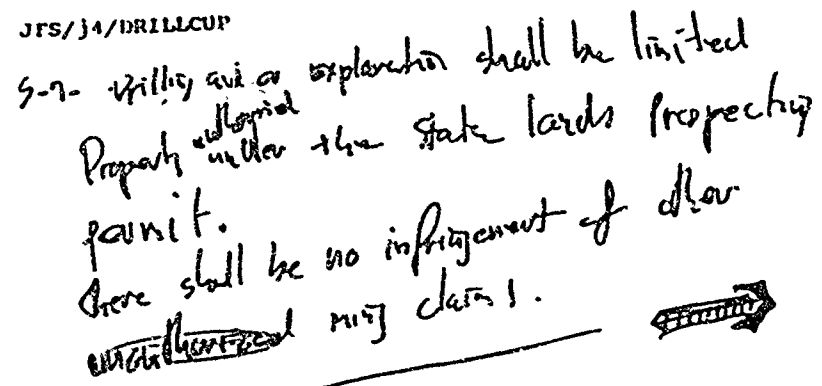 JFS/j4/DRILLCUP
5-7- Drilling and or exploration shall be limited
Property authorized under the State lands Prospecting
permit.
There shall be no infringement of other
mining claims.